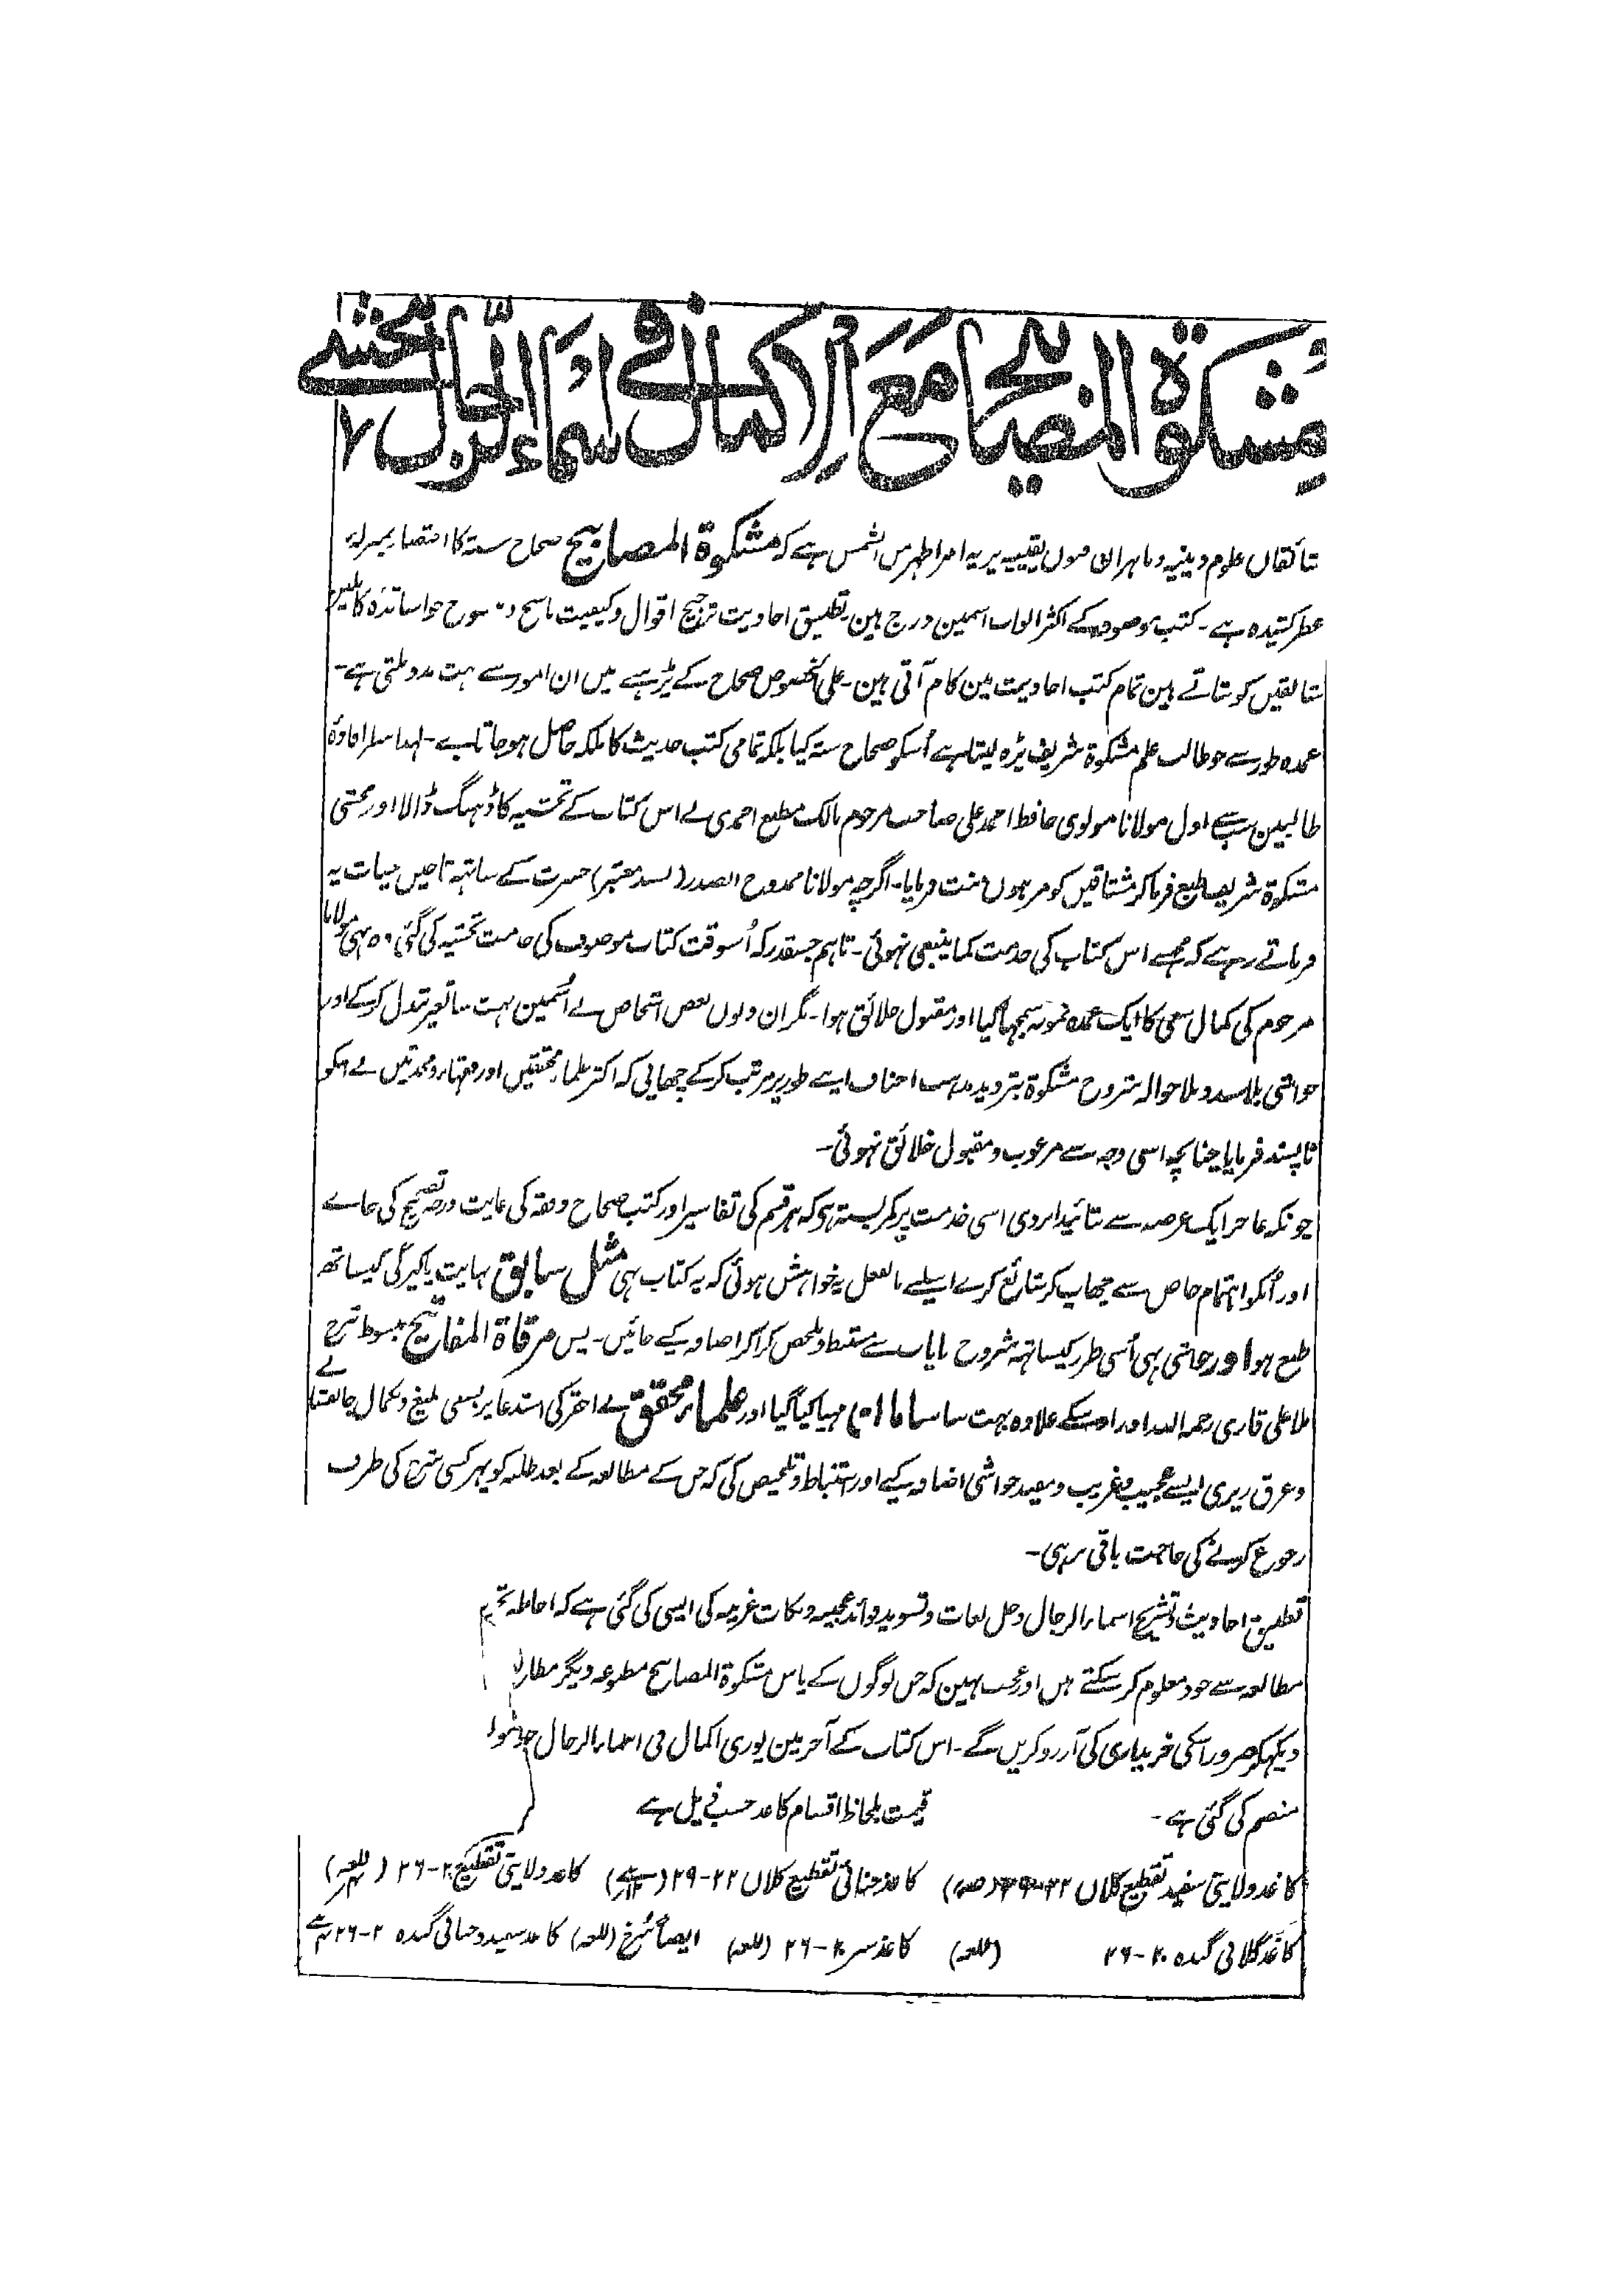 مشکوة المصابیح مع الاکمال فی اسماء الرجال محشے
شائقان علوم دینیہ وماہران فنون یقینیہ پر یہ امر اظہر من الشمس ہے کہ مشکوة المصابیح صحاح ستہ کا
عطر کشیدہ ہے۔ کتب موصوفہ کے اکثر ابواب اسمین درج ہین۔ تطبیق احادیث ترجیح اقوال وکیفیت ناسخ و منسوخ جو اساتذہ کاملین
شائقین کو بتاتے ہین تمام کتب احادیث مین کام آتی ہین۔ علی الخصوص صحاح کے پڑہنے میں ان امور سے بہت مدد ملتی ہے۔
عمدہ طور سے جو طالب علم مشکوة شریف پڑہ لیتا ہے اُسکو صحاح ستہ کیا بلکہ تمامی کتب حدیث کا ملکہ حاصل ہو جاتا ہے۔ لہذا بنظر افادۂ
طالبین سب سے اول مولانا مولوی حافظ احمد علی صاحب مرحوم مالک مطبع احمدی نے اس کتاب کے تحشیہ کا ڈہنگ ڈالا اور محشی
مشکوة شریف طبع فرما کر مشتاقین کو مرہون منت فرمایا۔ اگرچہ مولانا ممدوح الصدر (بسند معتبر) حسرت کے ساتہہ تاحین حیات یہ
فرماتے رہے کہ مجہسے اس کتاب کی خدمت کما ینبغی نہوئی۔ تاہم جسقدر کہ اُسوقت کتاب موصوف کی خدمت تحشیہ کی گئی وہ بہی مولانا
مرحوم کی کمال سعی کا ایک عمدہ نمونہ سمجہا گیا اور مقبول خلائق ہوا۔ مگر ان دنوں بعض اشخاص نے اُسمین بہت سا تغیر تبدل کر کے اور
حواشی بلا سند و بلا حوالہ شروح مشکوة بتردید مذہب احناف ایسے طور پر مرتب کر کے چھاپی کہ اکثر علماء محققین اور فقہاء ومحدثین نے اسکو
ناپسند فرمایا چنانچہ اسی وجہ سے مرغوب ومقبول خلائق نہوئی۔
چونکہ عاجز ایک عرصہ سے بتائید ایزدی اسی خدمت پر کمربستہ ہے کہ ہر قسم کی تفاسیر اور کتب صحاح وفقہ کی غایت درجہ تصحیح کی جائے
اور اُنکو اہتمام خاص سے چھاپ کر شائع کرے اسیلیے بالفعل یہ خواہش ہوئی کہ یہ کتاب بہی مثل سابق نہایت پاکیزگی کیساتھ
طبع ہو اور حواشی بہی اُسی طرز کیساتہہ شروح نایاب سے مستنبط وملخص کرا کر اضافہ کیے جائیں۔ پس مرقاة المفاتیح مبسوط شرح
ملا علی قاری رحمہ اللہ اور اسکے علاوہ بہت سا سامان مہیا کیا گیا اور علماء محقق نے احقر کی استدعا پر بسعی بلیغ وبکمال جانفشانی
وعرق ریزی ایسے عجیب وغریب ومفید حواشی اضافہ کیے اور استنباط وتلخیص کی کہ جس کے مطالعہ کے بعد طلبہ کو پہر کسی شرح کی طرف
رجوع کرنے کی حاجت باقی نرہی۔
تطبیق احادیث وتشریح اسماء الرجال وحل لغات وتسوید فوائد عجیبہ ونکات غریبہ کی ایسی کی گئی ہے کہ احاطہ
مطالعہ سے خود معلوم کر سکتے ہیں اور عجب نہین کہ جن لوگوں کے پاس مشکوة المصابیح مطبوعہ دیگر
دیکہکر ضرور اسکی خریداری کی آرزو کریں گے۔ اس کتاب کے آخر مین پوری اکمال فی اسماء الرجال
منضم کی گئی ہے۔ قیمت بلحاظ اقسام کاغذ حسب ذیل ہے
کاغذ ولایتی سفید تقطیع کلاں ۲۲-۲۹ کاغذ حنائی تقطیع کلاں ۲۲-۲۹ کاغذ ولایتی تقطیع ۲۰-۲۶
کاغذ گلابی گندہ ۲۰-۲۶ کاغذ سبز ۲۰-۲۶ ایضاً سُرخ کاغذ سپید وحنائی گندہ ۲۰-۲۶